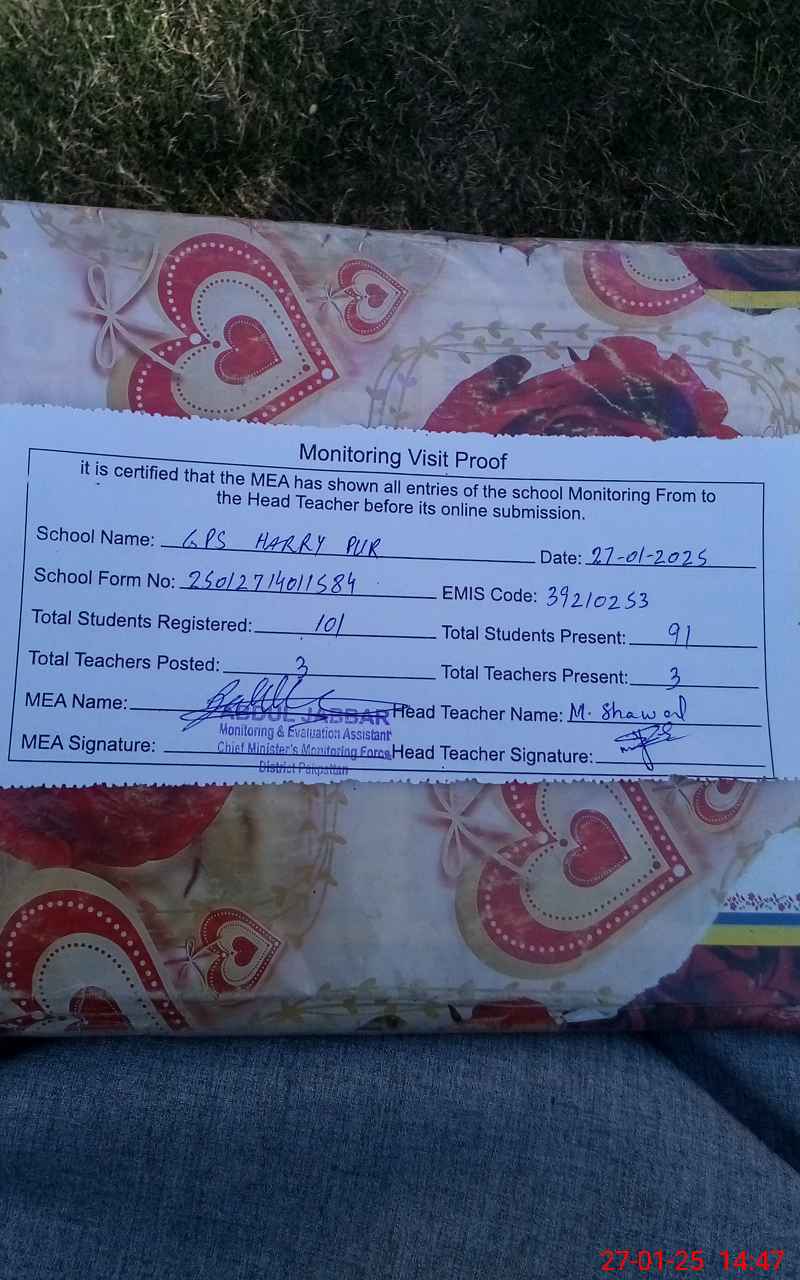 Monitoring Visit Proof
it is certified that the MEA has shown all entries of the school Monitoring From to
the Head Teacher before its online submission.
School Name: GPS HARRY PUR Date: 27-01-2025
School Form No: 25012714011584 EMIS Code: 39210253
Total Students Registered: 101 Total Students Present: 91
Total Teachers Posted: 3 Total Teachers Present: 3
MEA Name: Head Teacher Name: M. Shawal
ABDUL JABBAR
Monitoring & Evaluation Assistant
Chief Minister's Monitoring Force
District Pakpattan
MEA Signature: Head Teacher Signature:
27-01-25 14:47